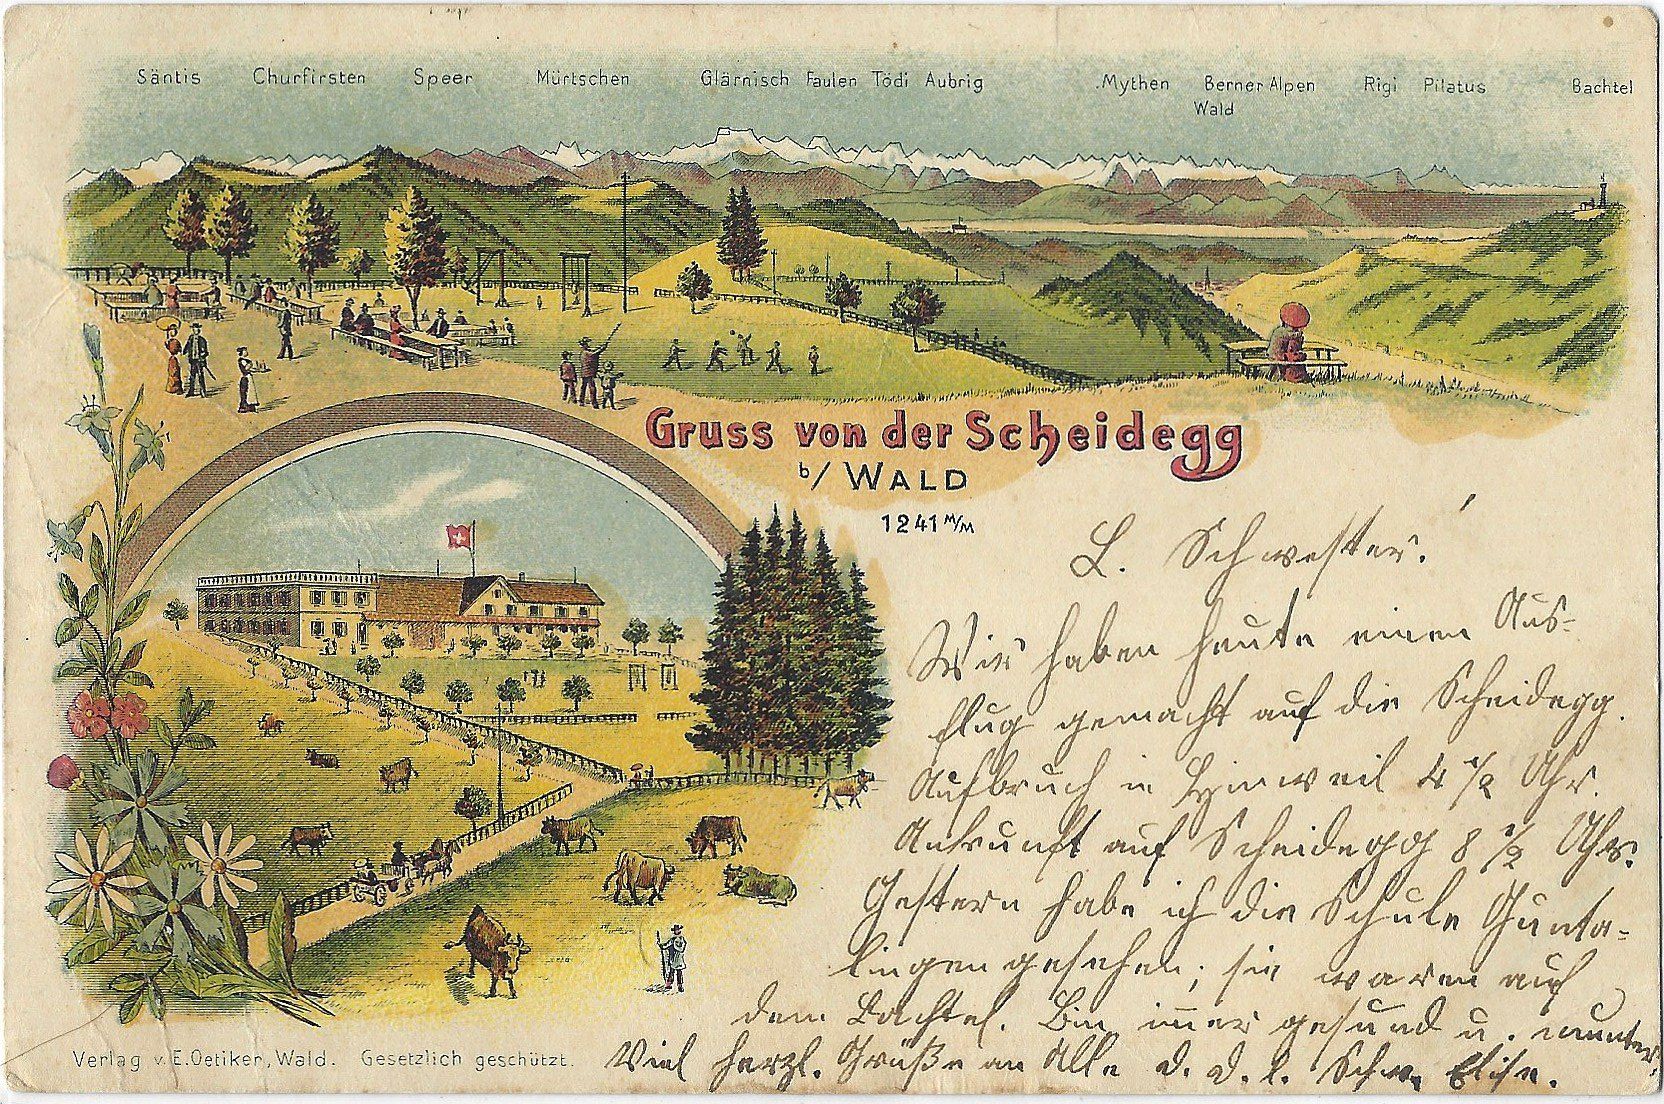 Säntis Churfirsten Speer Mürtschen Glärnisch Faulen Tödi Aubrig Mythen Berner Alpen Rigi Pilatus Bachtel
Wald
Gruss von der Scheidegg
b/ WALD
1241 M/M
L. Schwester!
Wir haben heute einen Aus-
flug gemacht auf die Scheidegg.
Aufbruch in Hinweil 4 1/2 Uhr.
Ankunft auf Scheidegg 8 1/2 Uhr.
Gestern habe ich die Schule Gunta-
lingen gesehen; sie waren auf
dem Bachtel. Bin immer gesund u. munter.
Viel herzl. Grüße an Alle d. d. l. Schw. Elise.
Verlag v. E. Oetiker, Wald. Gesetzlich geschützt.